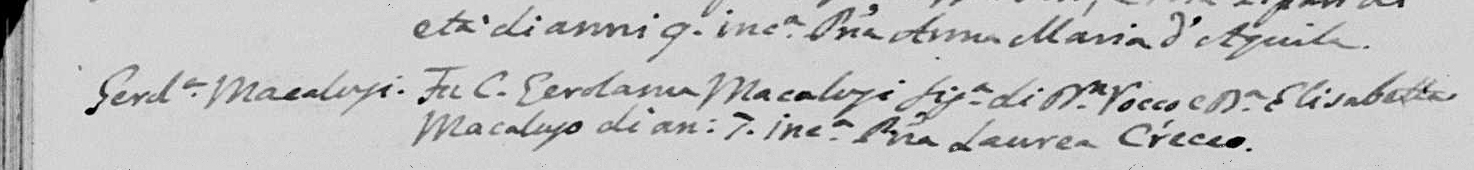 età di anni 9. inc.ª P̃ña Anna Maria d'Aquila.
Gerd.ª Macalusi. Fu C. Gerolama Macalusi fig.ª di D.n Rocco e D.ª Elisabetta
Macaluso di an: 7. inc.ª P̃ña Laurea Creceo.